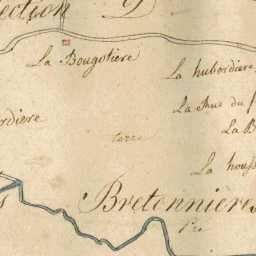 ection D
La Bougotiere
La hubordiere
La Rue du f
rdiere
La B
terre
La houss
s Bretonnières
pré